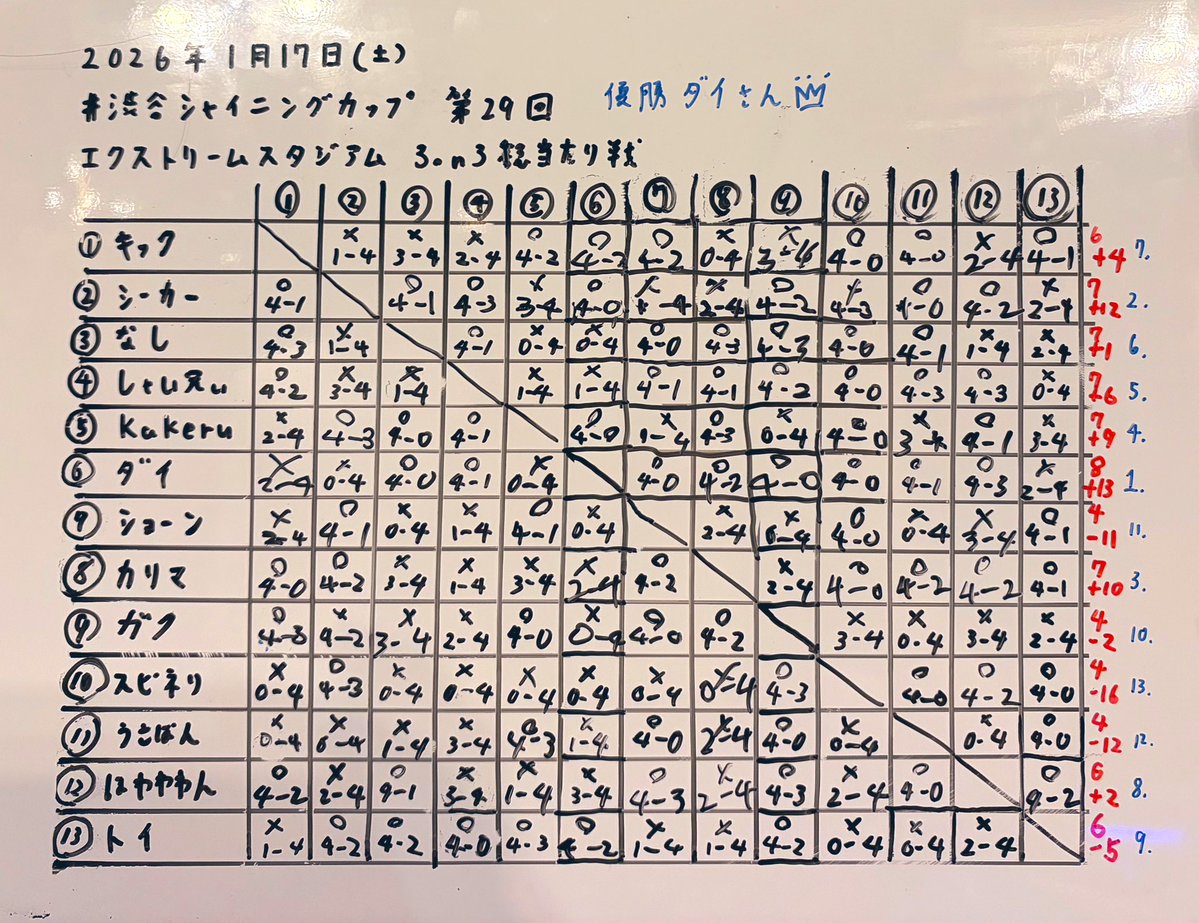 2026年1月17日(土)
#渋谷シャイニングカップ 第29回 優勝 ダイさん
エクストリームスタジアム 3on3 総当たり戦
① ② ③ ④ ⑤ ⑥ ⑦ ⑧ ⑨ ⑩ ⑪ ⑫ ⑬
① キック ×1-4 ×3-4 ×2-4 ○4-2 ○4-2 ○4-2 ×0-4 ×3-4 ○4-0 ○4-0 ×2-4 ○4-1 6 +4 7.
② シーカー ○4-1 ○4-1 ○4-3 ×3-4 ○4-0 ×1-4 ×2-4 ○4-2 ×4-3 ○4-0 ○4-2 ×2-4 7 +12 2.
③ なし ○4-3 ×1-4 ○4-1 ×0-4 ×0-4 ○4-0 ○4-3 ○4-3 ○4-0 ○4-1 ×1-4 ×2-4 7 +1 6.
④ ○4-2 ×3-4 ×1-4 ×1-4 ×1-4 ○4-1 ○4-1 ○4-2 ○4-0 ○4-3 ○4-3 ×0-4 7 +6 5.
⑤ Kakeru ×2-4 ○4-3 ○4-0 ○4-1 ○4-0 ×1-4 ○4-3 ×0-4 ○4-0 ×3-4 ○4-1 ×3-4 7 +9 4.
⑥ ダイ ×2-4 ×0-4 ○4-0 ○4-1 ×0-4 ○4-0 ○4-2 ○4-0 ○4-0 ○4-1 ○4-3 ×2-4 8 +13 1.
⑦ ショーン ×2-4 ○4-1 ×0-4 ×1-4 ○4-1 ×0-4 ×2-4 ×0-4 ○4-0 ×0-4 ×3-4 ○4-1 4 -11 11.
⑧ カリマ ○4-0 ○4-2 ×3-4 ×1-4 ×3-4 ×2-4 ○4-2 ×2-4 ○4-0 ○4-2 ○4-2 ○4-1 7 +10 3.
⑨ ガク ○4-3 ×4-2 ×3-4 ×2-4 ○4-0 ×0-4 ○4-0 ○4-2 ×3-4 ×0-4 ×3-4 ×2-4 4 -2 10.
⑩ スピネリ ×0-4 ○4-3 ×0-4 ×0-4 ×0-4 ×0-4 ×0-4 ×0-4 ○4-3 ○4-0 ○4-2 ○4-0 4 -16 13.
⑪ うさばん ×0-4 ×0-4 ×1-4 ×3-4 ○4-3 ×1-4 ○4-0 ×2-4 ○4-0 ×0-4 ×0-4 ○4-0 4 -12 12.
⑫ はわわわん ○4-2 ×2-4 ○4-1 ×3-4 ×1-4 ×3-4 ○4-3 ×2-4 ○4-3 ×2-4 ○4-0 ○4-2 6 +2 8.
⑬ トイ ×1-4 ○4-2 ○4-2 ○4-0 ○4-3 ○4-2 ×1-4 ×1-4 ○4-2 ×0-4 ×0-4 ×2-4 6 -5 9.